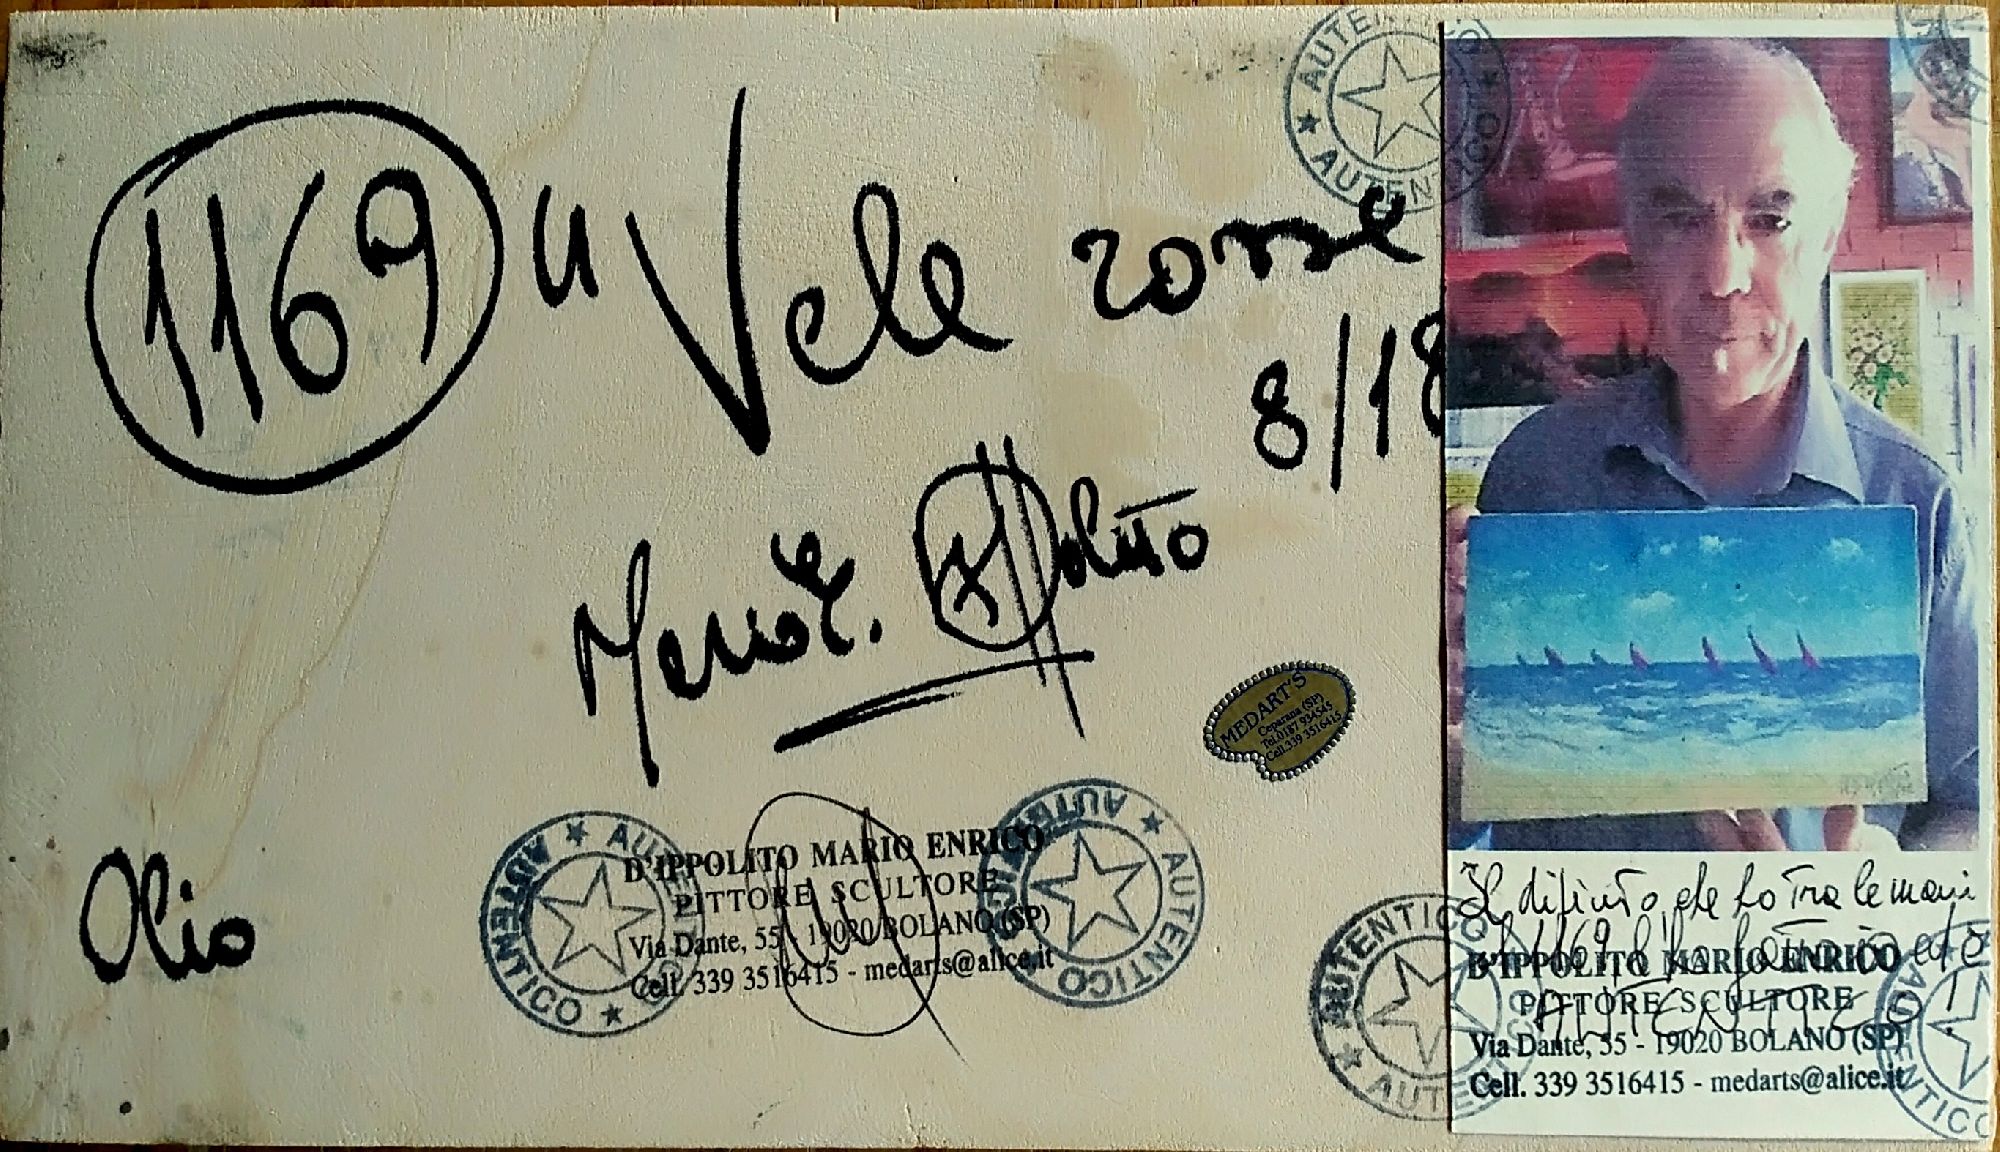 1169 " Vele rosse
8/18
Mario E. D'Ippolito
Olio
AUTENTICO ★ AUTENTICO ★
MEDART'S
Ceparana (SP)
Tel.0187 934545
Cell.339 3516415
★ AUTENTICO ★ AUTENTICO
D'IPPOLITO MARIO ENRICO
PITTORE SCULTORE
Via Dante, 55 - 19020 BOLANO (SP)
Cell. 339 3516415 - medarts@alice.it
AUTENTICO ★ AUTENTICO ★
AUTENTICO ★ AUTENTICO
Il dipinto che ho tra le mani
1169 l'ho fatto io ed è
AUTENTICO!
D'IPPOLITO MARIO ENRICO
PITTORE SCULTORE
Via Dante, 55 - 19020 BOLANO (SP)
Cell. 339 3516415 - medarts@alice.it